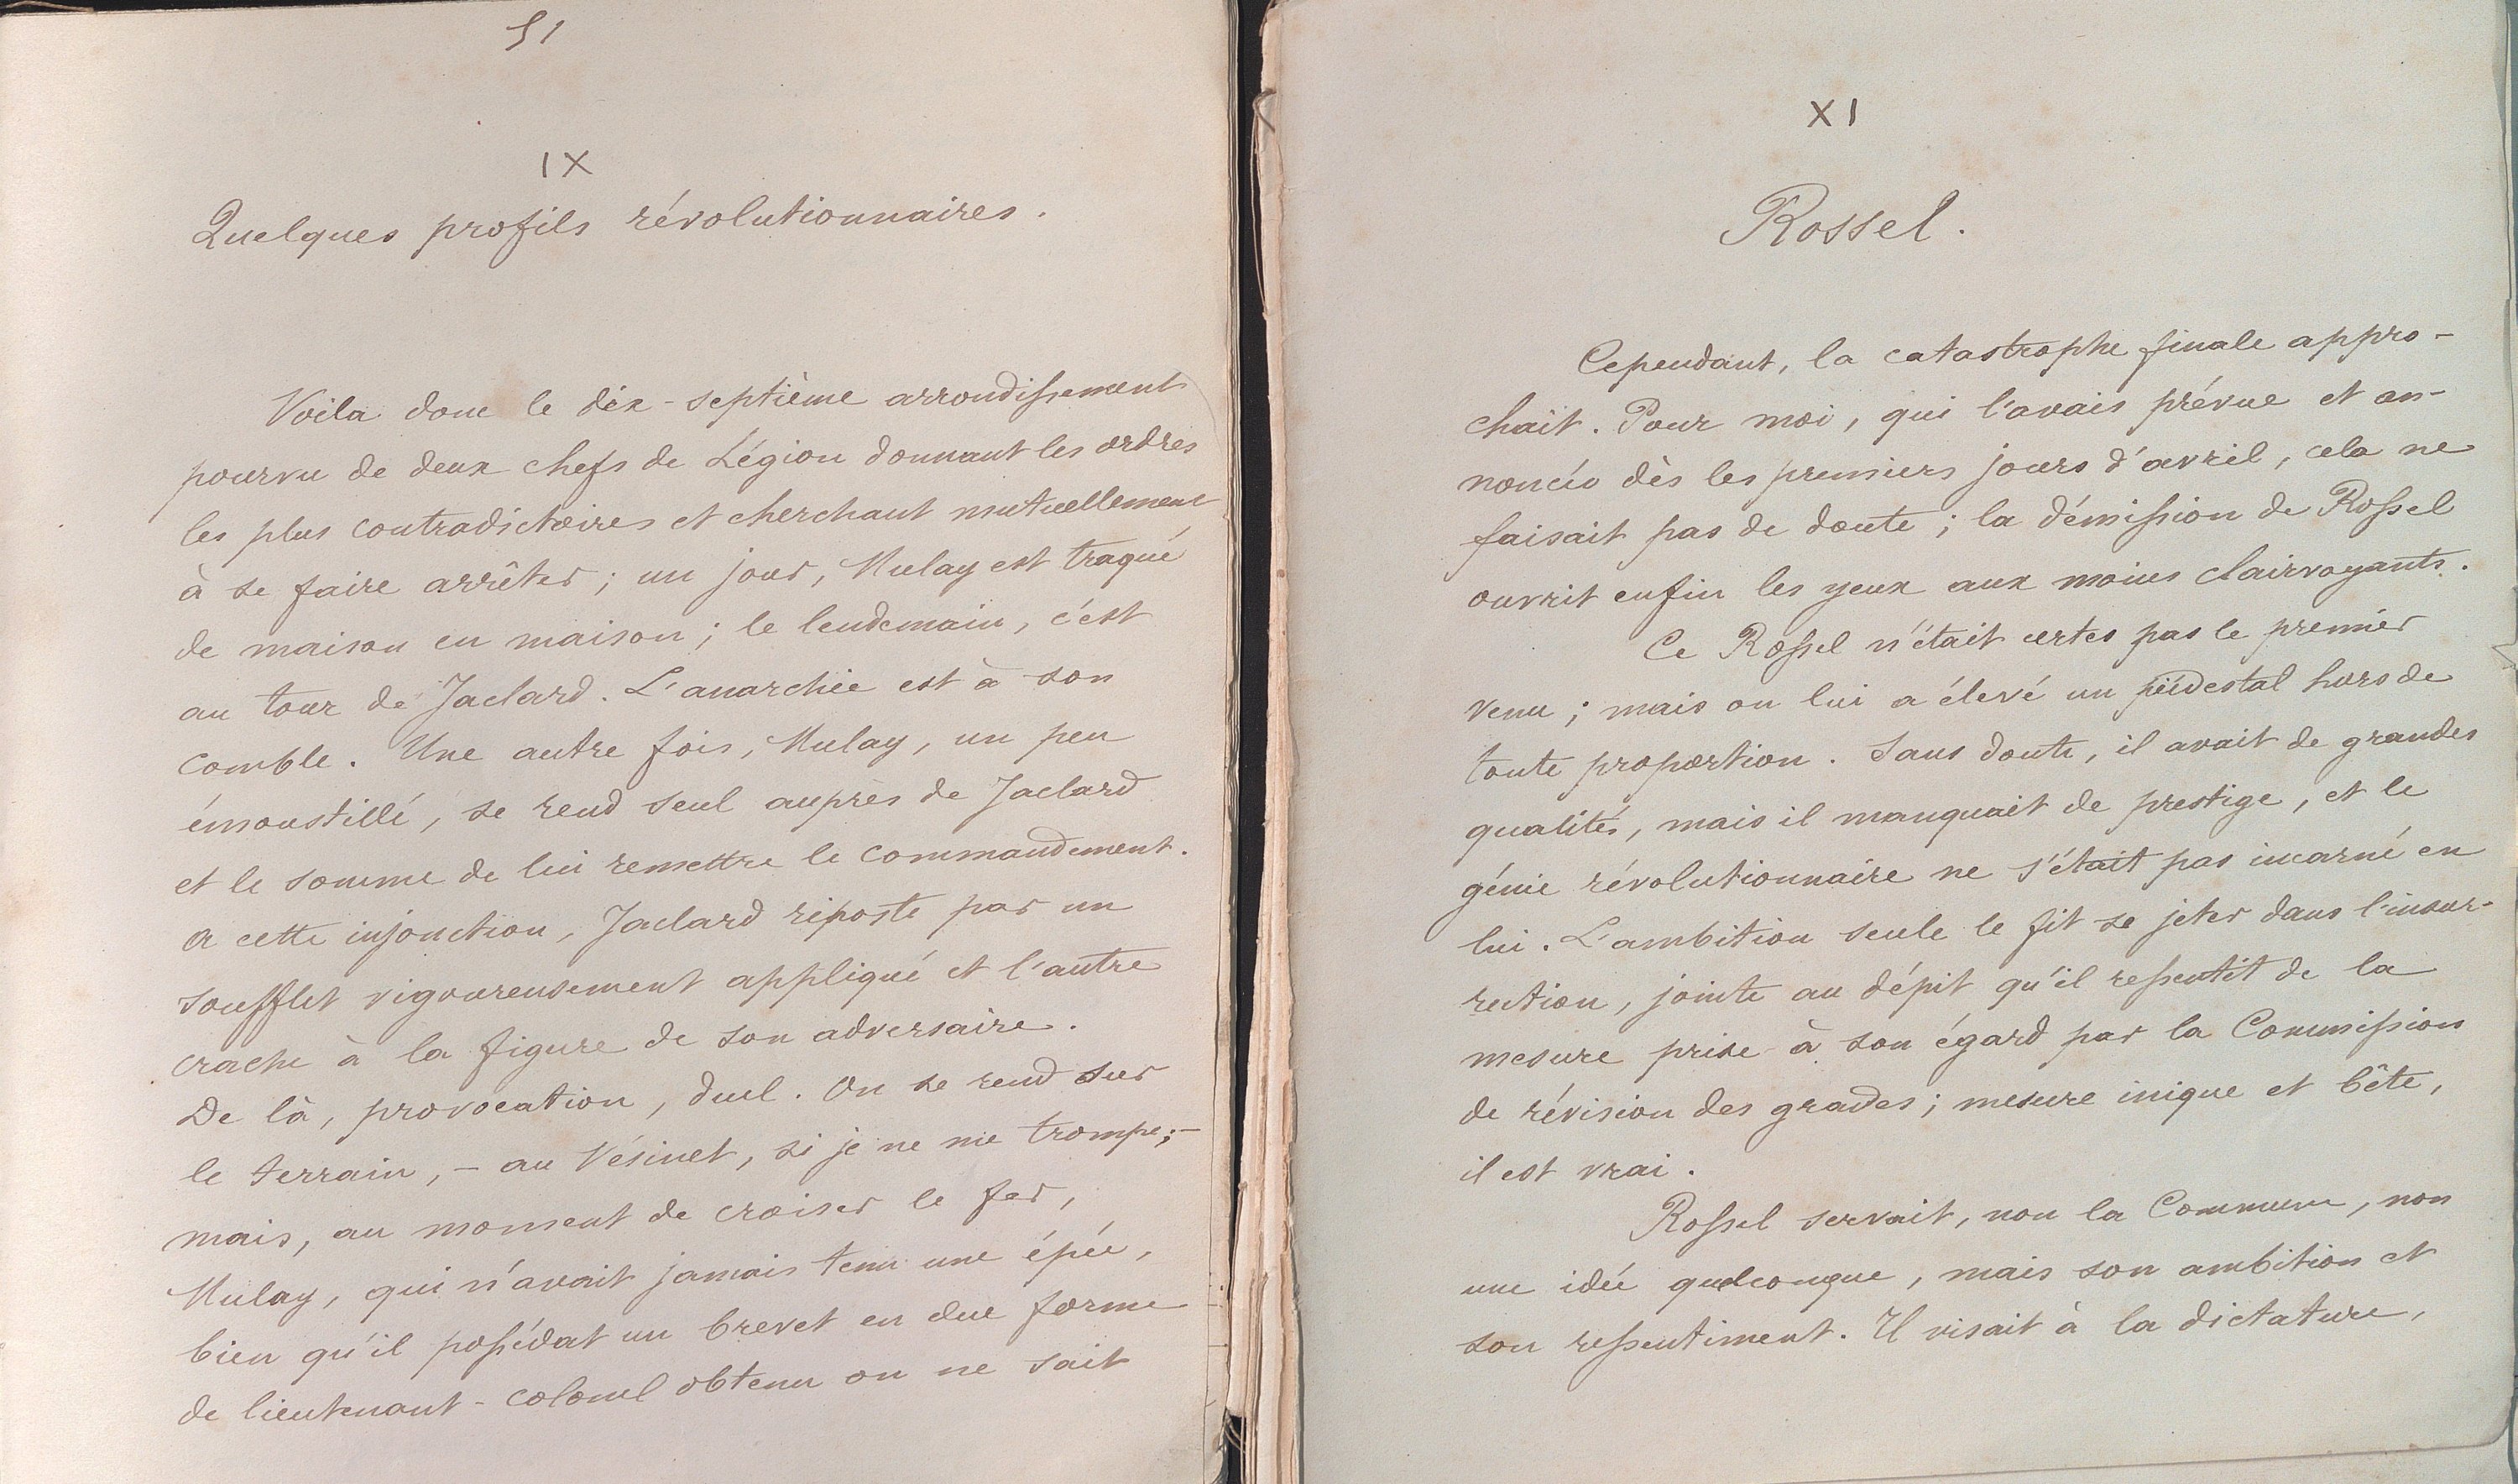 51
IX
Quelques profils révolutionnaires.
Voilà donc le dix-septième arrondissement
pourvu de deux chefs de Légion donnant les ordres
les plus contradictoires et cherchant mutuellement
à se faire arrêter ; un jour, Mulay est traqué
de maison en maison ; le lendemain, c'est
au tour de Jaclard. L'anarchie est à son
comble. Une autre fois, Mulay, un peu
émoustillé, se rend seul auprès de Jaclard
et le somme de lui remettre le commandement.
A cette injonction, Jaclard riposte par un
soufflet vigoureusement appliqué et l'autre
crache à la figure de son adversaire.
De là, provocation, duel. On se rend sur
le terrain, – au Vésinet, si je ne me trompe ; –
mais, au moment de croiser le fer,
Mulay, qui n'avait jamais tenu une épée,
bien qu'il possédat un brevet en due forme
de lieutenant-colonel obtenu on ne sait
XI
Rossel.
Cependant, la catastrophe finale appro-
chait. Pour moi, qui l'avais prévue et an-
noncée dès les premiers jours d'avril, cela ne
faisait pas de doute ; la démission de Rossel
ouvrit enfin les yeux aux moins clairvoyants.
Ce Rossel n'était certes pas le premier
venu ; mais on lui a élevé un piédestal hors de
toute proportion. Sans doute, il avait de grandes
qualités, mais il manquait de prestige, et le
génie révolutionnaire ne s'était pas incarné en
lui. L'ambition seule le fit se jeter dans l'insur-
rection, jointe au dépit qu'il ressentit de la
mesure prise à son égard par la Commission
de révision des grades ; mesure inique et bête,
il est vrai.
Rossel servait, non la Commune, non
une idée quelconque, mais son ambition et
son ressentiment. Il visait à la dictature,